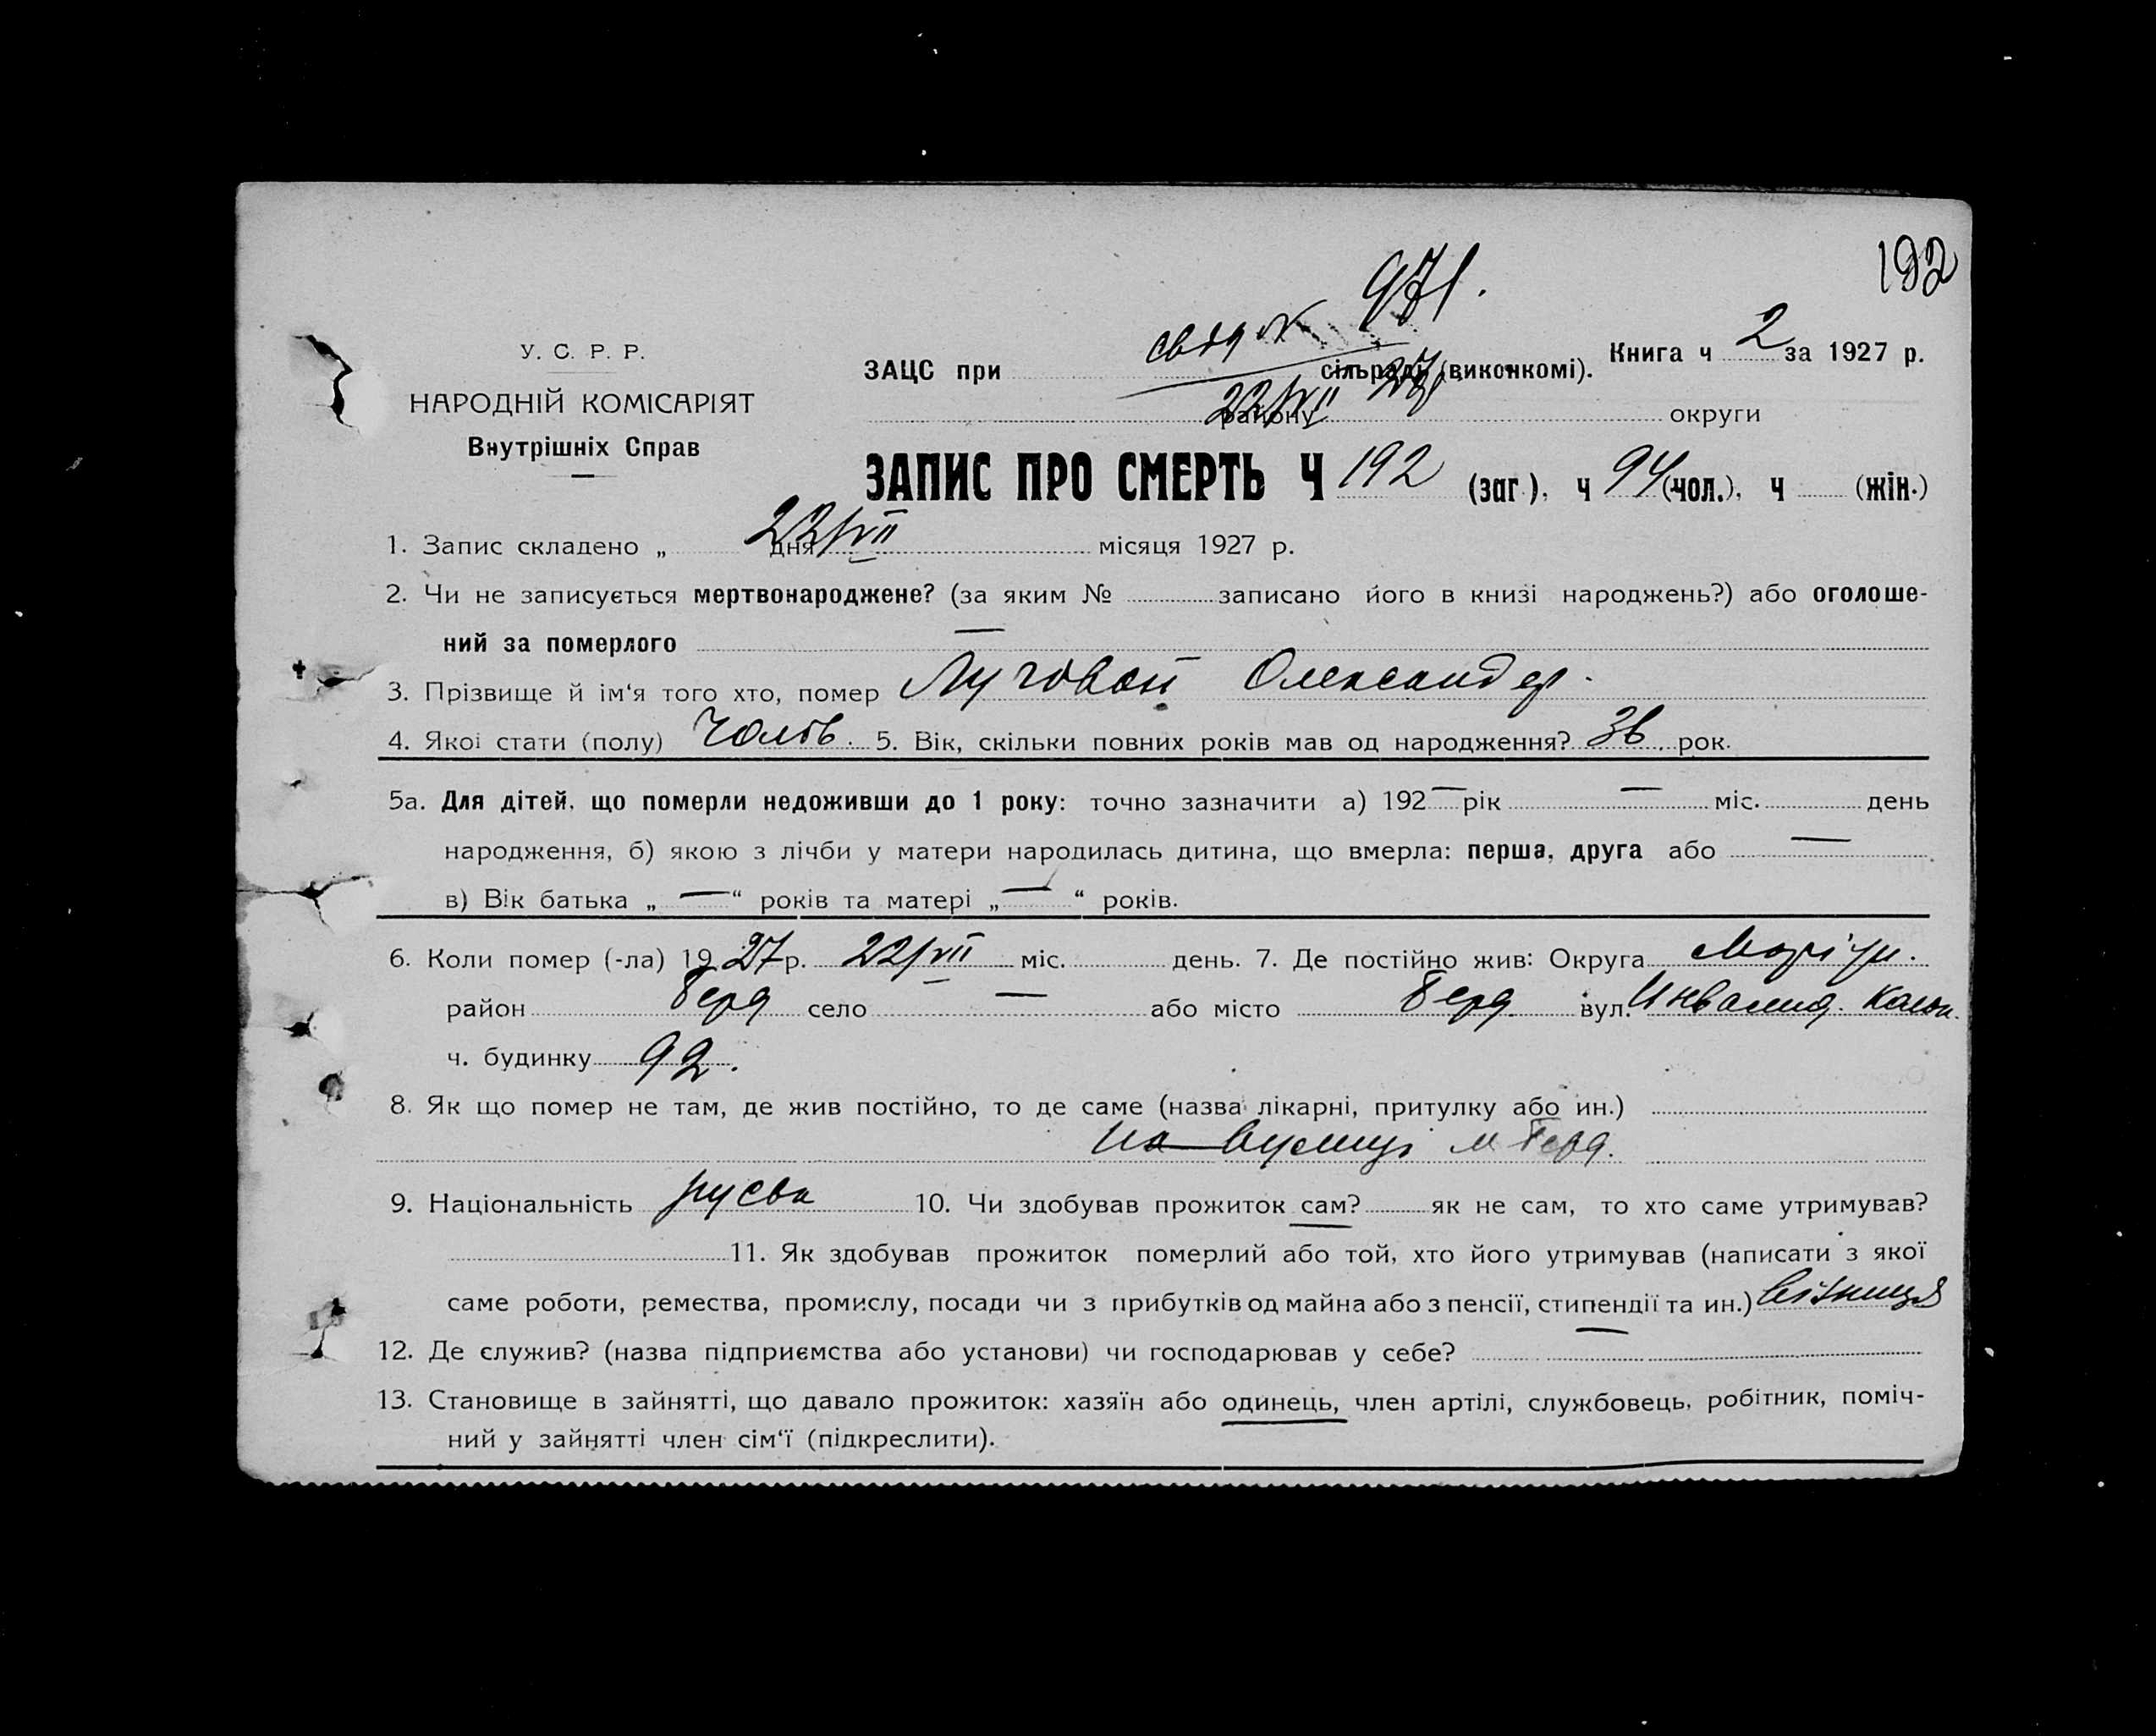 192
971.
У. С. Р. Р.
НАРОДНІЙ КОМІСАРІЯТ
Внутрішніх Справ
ЗАЦС при сільраді (виконкомі). Книга ч 2 за 1927 р.
22/VII 27
району округи
ЗАПИС ПРО СМЕРТЬ Ч 192 (заг.), ч 94 (чол.), ч (жін.)
1. Запис складено „ 22/VII дня місяця 1927 р.
2. Чи не записується мертвонароджене? (за яким № записано його в книзі народжень?) або оголоше-
ний за померлого —
3. Прізвище й ім‘я того хто, помер Луговой Олександер.
4. Якої стати (полу) чолов. 5. Вік, скільки повних років мав од народження? рок.
5а. Для дітей, що померли недоживши до 1 року: точно зазначити а) 192 — рік — міс. день
народження, б) якою з лічби у матери народилась дитина, що вмерла: перша, друга або —
в) Вік батька „ — “ років та матері „ — “ років.
6. Коли помер (-ла) 19 27 р. 22/VII міс. день. 7. Де постійно жив: Округа Маріуп.
район Берд село — або місто Берд. вул. Инвалид. Колон.
ч. будинку 92.
8. Як що помер не там, де жив постійно, то де саме (назва лікарні, притулку або ин.)
на вулиці м Берд.
9. Національність руськ 10. Чи здобував прожиток сам? як не сам, то хто саме утримував?
11. Як здобував прожиток померлий або той, хто його утримував (написати з якої
саме роботи, ремества, промислу, посади чи з прибутків од майна або з пенсії, стипендії та ин.) візниця
12. Де служив? (назва підприємства або установи) чи господарював у себе? —
13. Становище в зайнятті, що давало прожиток: хазяїн або одинець, член артілі, службовець, робітник, поміч-
ний у зайнятті член сім‘ї (підкреслити).